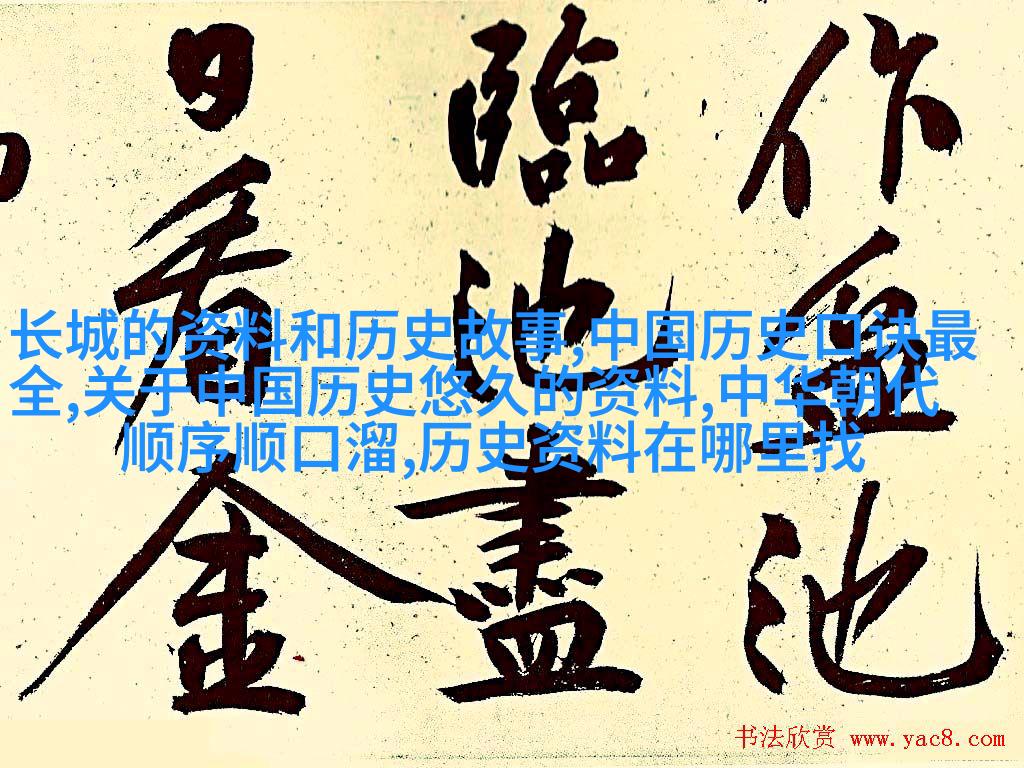 作盆池
臨池盡
日看金
长城的资料和历史故事,中国历史口诀最
全,关于中国历史悠久的资料,中华朝代
顺序顺口溜,历史资料在哪里找
书法欣赏 www.yac8.com